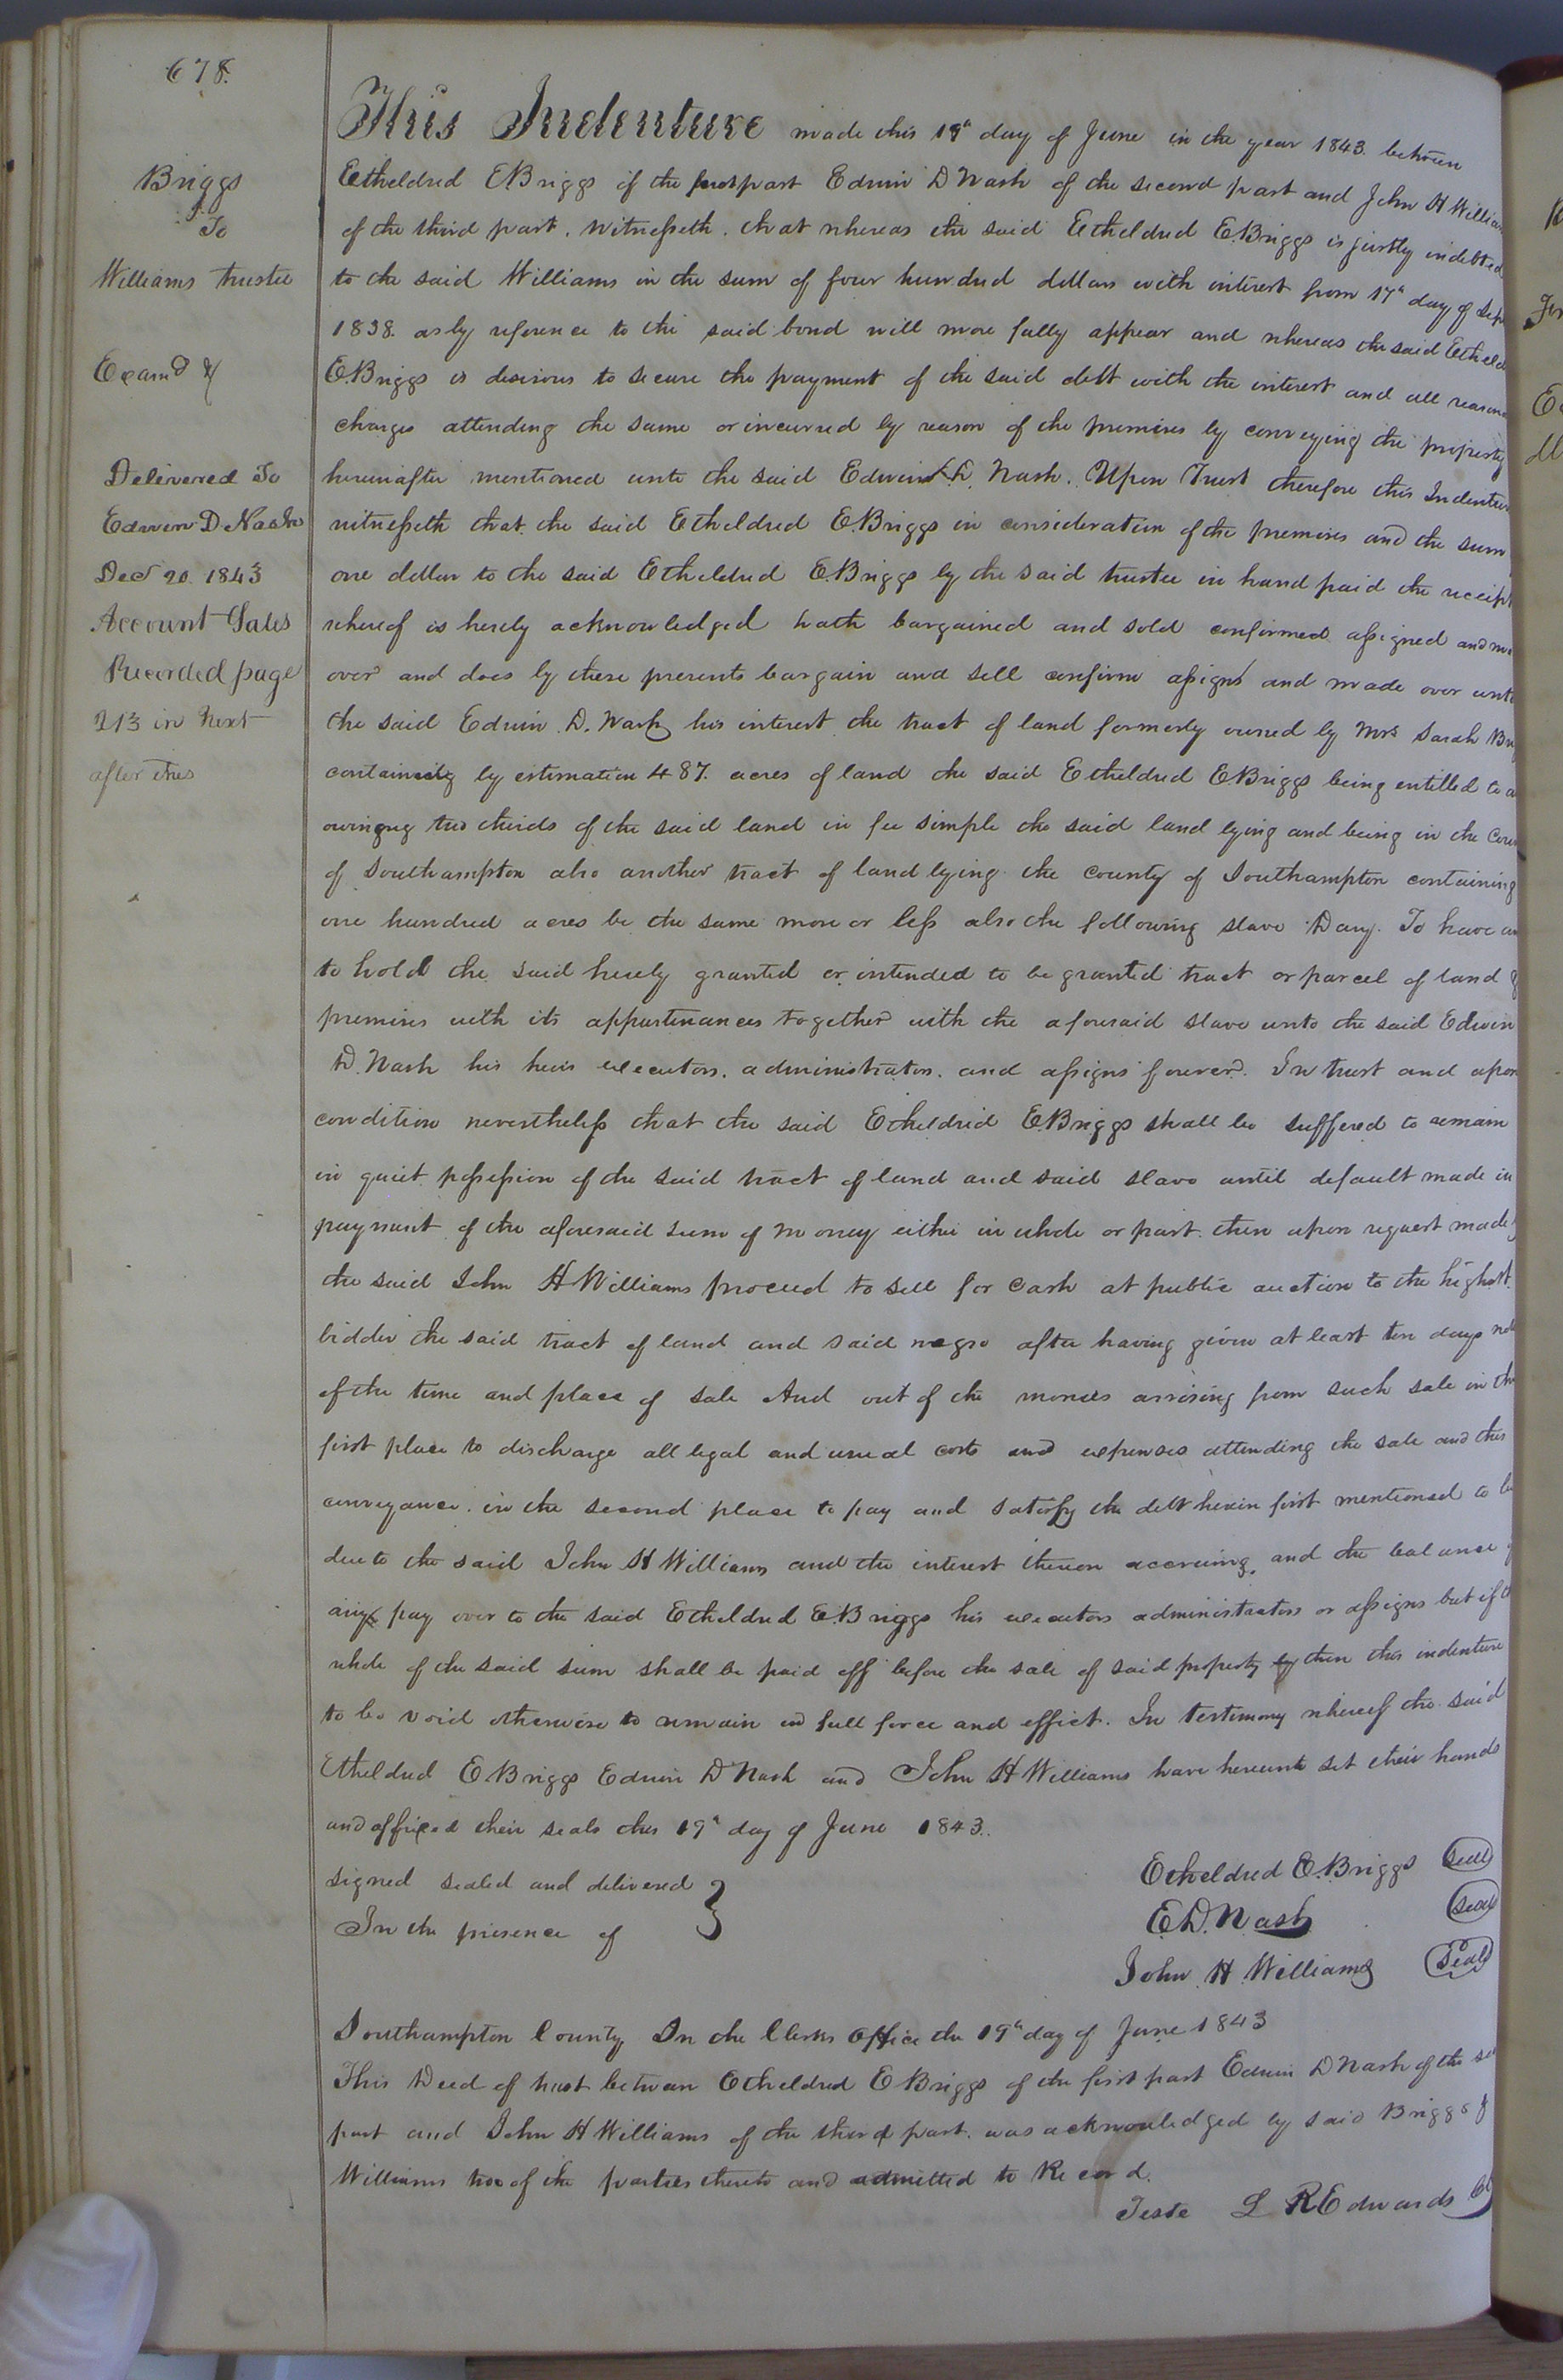 678.
Briggs
To
Williams trustee
Examd
Delivered To
Edwin D Nash
Decr 20. 1843
Account Sales
Recorded page
213 in Next
after this
This Indenture made this 19th day of June in the year 1843. between
Etheldred E Briggs of the first part Edwin D Nash of the second part and John H William
of the third part. Witnesseth. that whereas the said Etheldred E. Briggs is justly indebted
to the said Williams in the sum of four hundred dollars with interest from 17th day of Sep
1838. as by reference to the said bond will more fully appear and whereas the said Etheld
E. Briggs is desirous to secure the payment of the said debt with the interest and all reason
charges attending the same or incurred by reason of the premises by conveying the property
hereinafter mentioned unto the said Edwin D. Nash. Upon Trust therefore this Indenture
witnesseth that the said Etheldred E. Briggs in consideration of the premises and the sum
one dollar to the said Etheldred E. Briggs by the said trustee in hand paid the receipt
whereof is hereby acknowledged hath bargained and sold confirmed assigned and m
over and does by these presents bargain and sell confirm assign and made over unto
the said Edwin D. Nash his interest the tract of land formerly owned by Mrs Sarah Br
containing by estimation 487. acres of land the said Etheldred E. Briggs being entitled to a
owingng two thirds of the said land in fee simple the said land lying and being in the Cou
of Southampton also another tract of land lying the county of Southampton containing
one hundred acres be the same more or less also the following slave Davy. To have an
to hold the said hereby granted or intended to be granted tract or parcel of land &
premises with its appurtinances together with the aforesaid slave unto the said Edwin
D. Nash his heirs executors. administrators. and assigns forever. In trust and upon
condition nevertheless that the said Etheldrid E. Briggs shall be suffered to remain
in quiet possession of the said tract of land and said slave until default made in
payment of the aforesaid sum of money either in whole or part. then upon request made
the said John H Williams proceed to sell for cash at public auction to the highest
bidder the said tract of land and said negro after having given at least ten days no
of the time and place of sale And out of the monies arrising from such sale in the
first place to discharge all legal and usual costs and expenses attending the sale and this
conveyance. in the second place to pay and satisfy the debt herein first mentioned to be
due to the said John H Williams and the interest thereon accruing. and the balance
any pay over to the said Etheldred E. Briggs his executors administrators or assigns but if th
whole of the said sum shall be paid off before the sale of said property then this indenture
to be void otherwise to remain in full force and effect. In testimony whereof the said
Etheldred E Briggs Edwin D Nash and John H Williams have hereunto set their hands
and affixed their seals this 19th day of June 1843.
signed sealed and delivered }
In the presence of
Etheldred E. Briggs Seal
E. D. Nash Seal
John H Williams Seal
Southampton County In the Clerks Office the 19th day of June 1843
This Deed of trust between Etheldred E Briggs of the first part Edwin D Nash of the se
part and John H Williams of the third part. was acknowledged by said Briggs &
Williams two of the parties thereto and admitted to Record.
Teste L R Edwards Cl